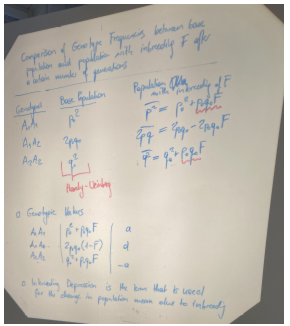 Comparison of Genotype Frequencies between base
population and population with inbreeding F after
a certain number of generations
Genotypes Base Population Population
with inbreeding of F
A₁A₁ p₀² p̅² = p₀² + p₀q₀F
A₁A₂ 2p₀q₀ 2p̅q̅ = 2p₀q₀ - 2p₀q₀F
A₂A₂ q₀² q̅² = q₀² + p₀q₀F
Hardy-Weinberg
o Genotypic Values
A₁A₁ | p₀² + p₀q₀F | a
A₁A₂ | 2p₀q₀(1-F) | d
A₂A₂ | q₀² + p₀q₀F | -a
o Inbreeding Depression is the term that is used
for the change in population mean due to inbreeding